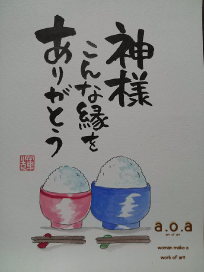 神様
こんな縁を
ありがとう
a.o.a
woman make a
work of art